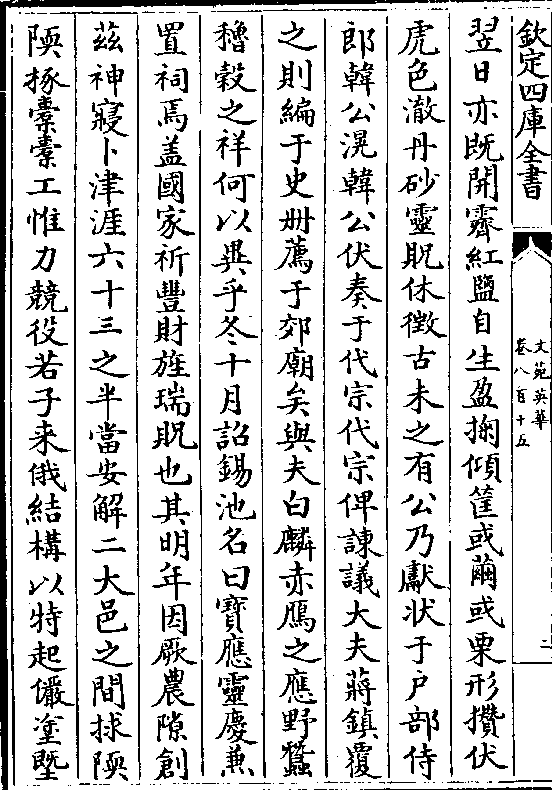 欽定四庫全書
文苑英華
卷八百十五
二
翌日亦既開霽紅鹽自生盈掬傾筐或繭或栗形攢伏
虎色澈丹砂靈貺休徴古未之有公乃獻狀于户部侍
郎韓公滉韓公伏奏于代宗代宗俾諌議大夫蔣鎮覆
之則編于史冊薦于郊廟矣與夫白麟赤鴈之應野蠶
穭穀之祥何以異乎冬十月詔錫池名曰寳應靈慶兼
置祠焉盖國家祈豐財旌瑞貺也其明年因厥農隙創
兹神寢卜津涯六十三之半當安解二大邑之間捄陾
陾椓橐橐工惟力競役若子来俄結構以特起儼塗塈